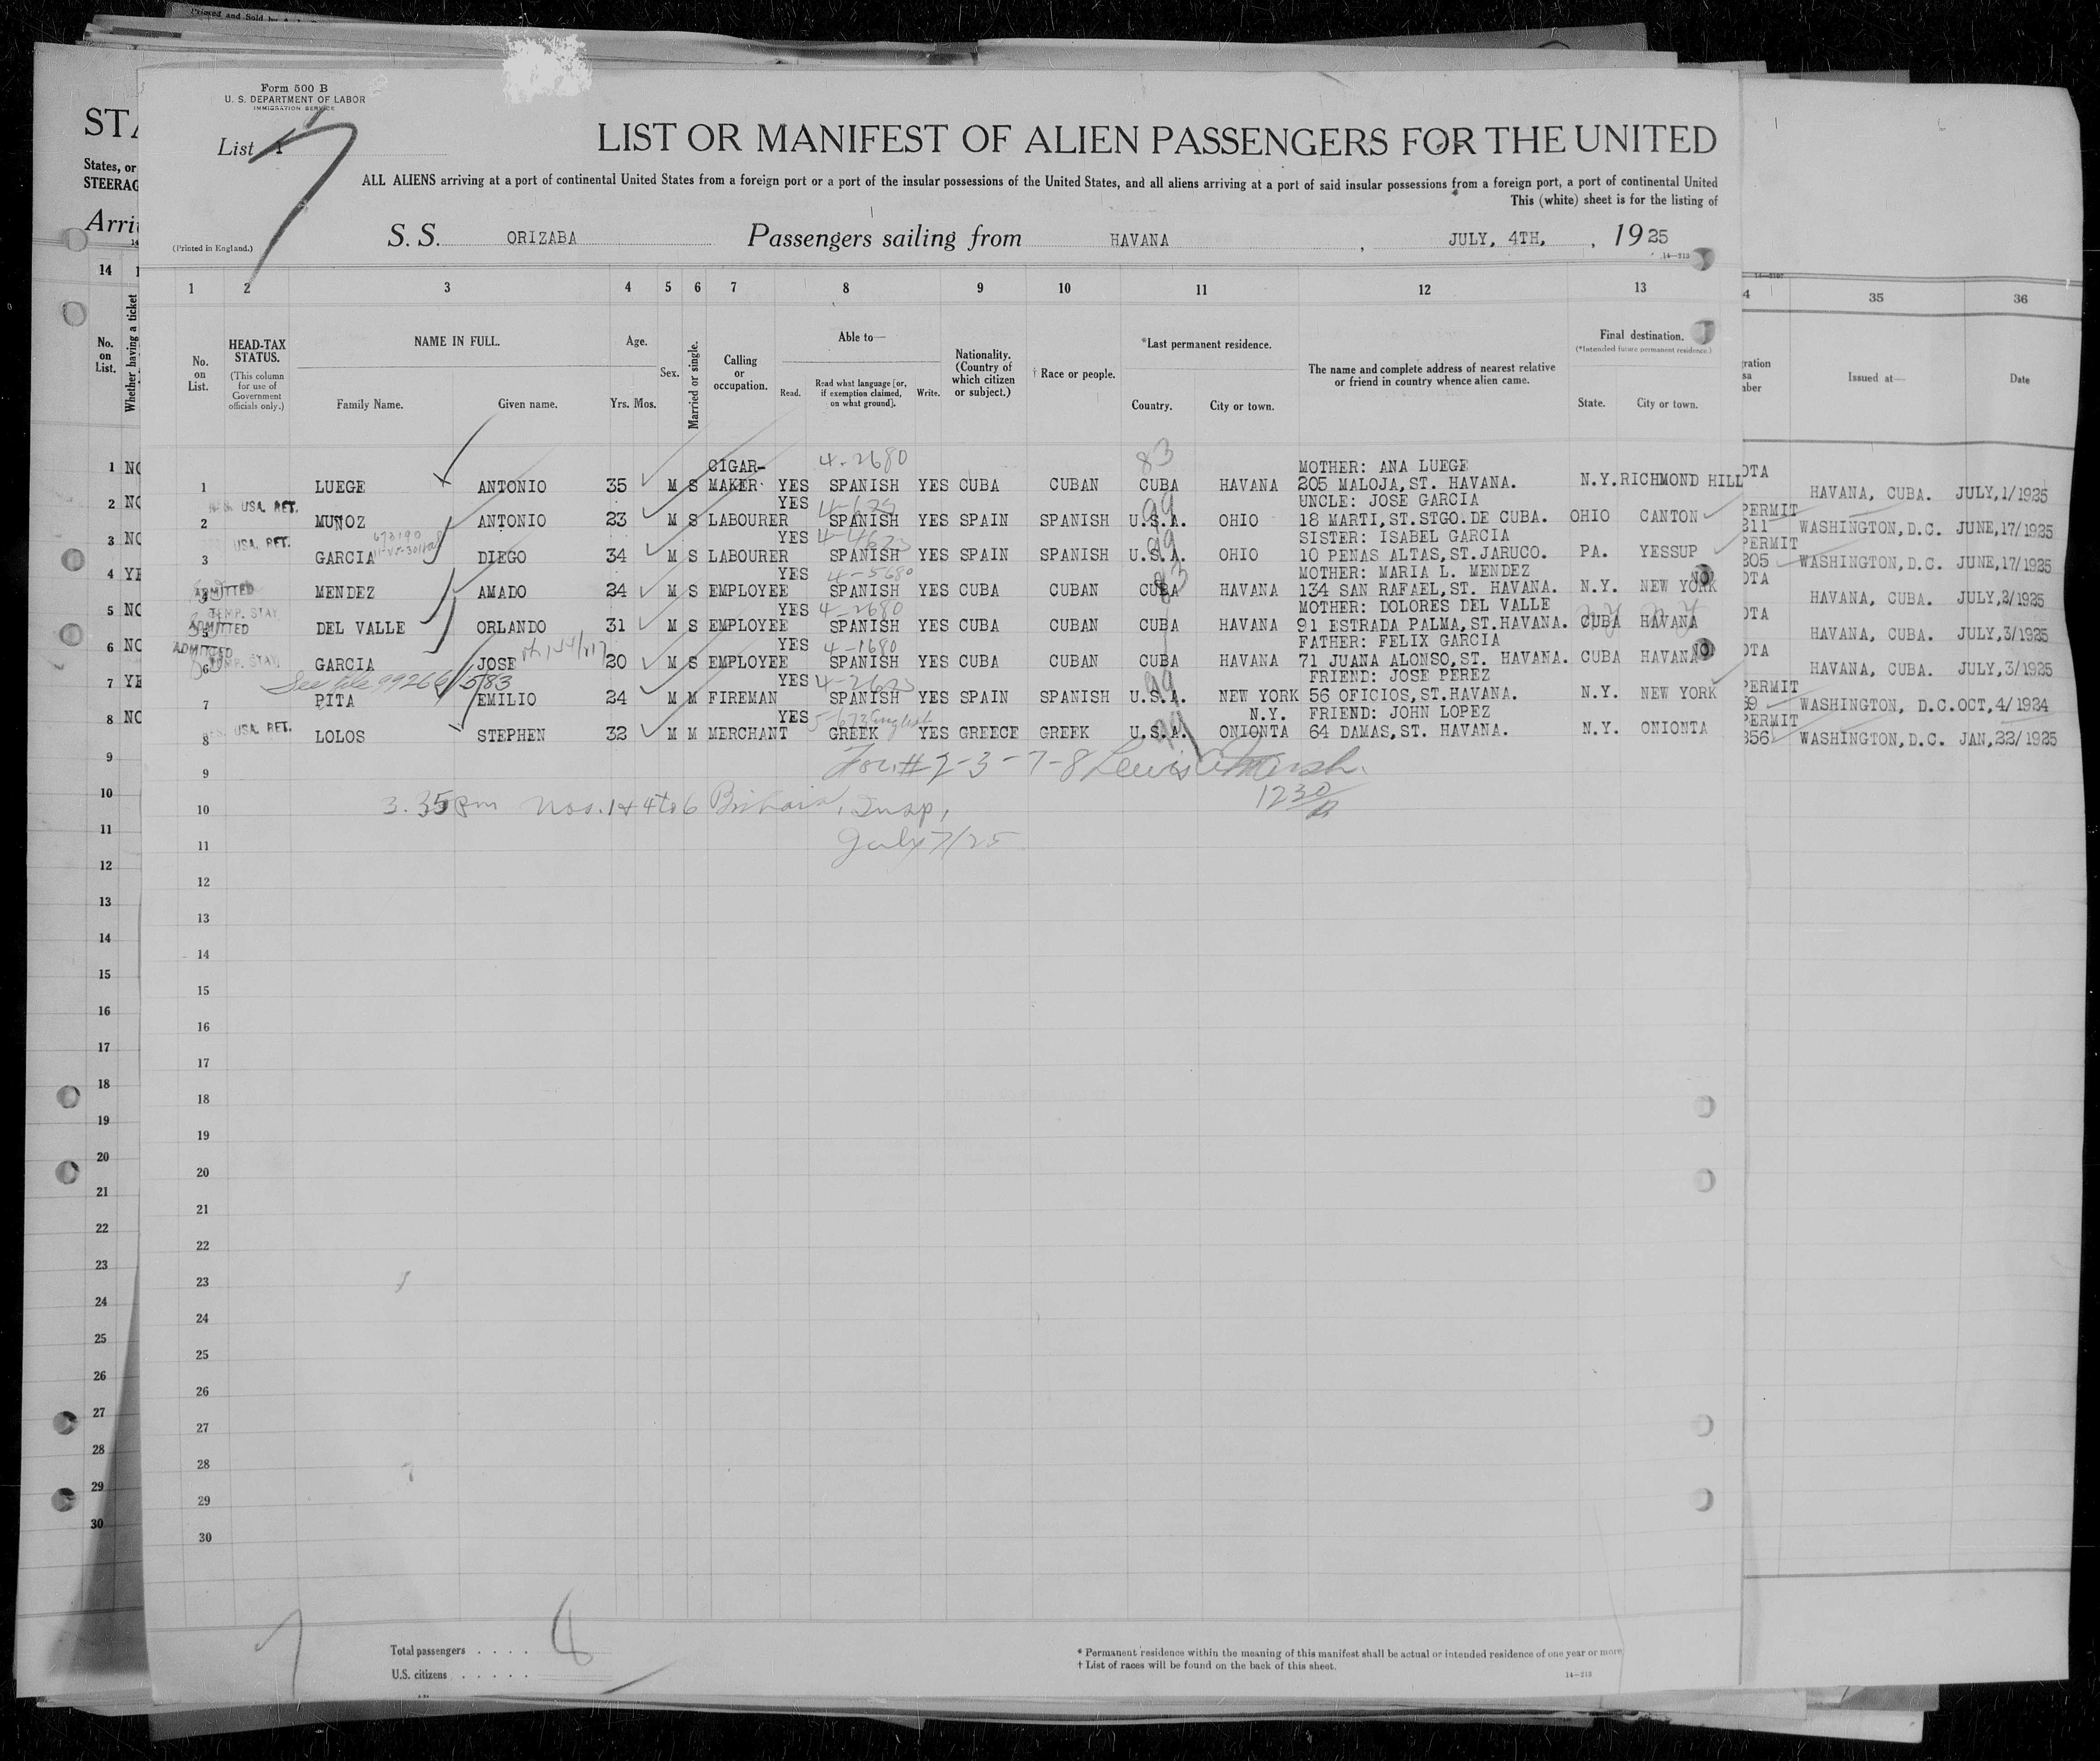 Printed and Sold by
Form 500 B
U. S. DEPARTMENT OF LABOR
IMMIGRATION SERVICE
List
7
LIST OR MANIFEST OF ALIEN PASSENGERS FOR THE UNITED
ALL ALIENS arriving at a port of continental United States from a foreign port or a port of the insular possessions of the United States, and all aliens arriving at a port of said insular possessions from a foreign port, a port of continental United
This (white) sheet is for the listing of
(Printed in England.)
S. S. ORIZABA Passengers sailing from HAVANA , JULY, 4TH, , 1925
14—213
STA
States, or
STEERAG
Arri
14
No. on List.
Whether having a ticket
1 2 3 4 5 6 7 8 9 10 11 12 13
No. on List.
HEAD-TAX STATUS.
(This column for use of Government officials only.)
NAME IN FULL.
Family Name. Given name.
Age.
Yrs. Mos.
Sex.
Married or single.
Calling or occupation.
Able to—
Read. Read what language [or, if exemption claimed, on what ground]. Write.
Nationality. (Country of which citizen or subject.)
† Race or people.
*Last permanent residence.
Country. City or town.
The name and complete address of nearest relative or friend in country whence alien came.
Final destination.
(*Intended future permanent residence.)
State. City or town.
35 36
Issued at— Date
CIGAR- 4-2680 83 MOTHER: ANA LUEGE
1 LUEGE ANTONIO 35 M S MAKER YES SPANISH YES CUBA CUBAN CUBA HAVANA 205 MALOJA,ST. HAVANA. N.Y. RICHMOND HILL HAVANA, CUBA. JULY,1/1925
USA. RET. YES 99 UNCLE: JOSE GARCIA PERMIT
2 MUÑOZ ANTONIO 23 M S LABOURER SPANISH YES SPAIN SPANISH U.S.A. OHIO 18 MARTI,ST.STGO.DE CUBA. OHIO CANTON 311 WASHINGTON,D.C. JUNE,17/1925
USA. RET. YES 99 SISTER: ISABEL GARCIA PERMIT
3 GARCIA DIEGO 34 M S LABOURER SPANISH YES SPAIN SPANISH U.S.A. OHIO 10 PENAS ALTAS,ST.JARUCO. PA. YESSUP 305 WASHINGTON,D.C. JUNE,17/1925
YES 4-5680 83 MOTHER: MARIA L. MENDEZ
ADMITTED MENDEZ AMADO 24 M S EMPLOYEE SPANISH YES CUBA CUBAN CUBA HAVANA 134 SAN RAFAEL,ST. HAVANA. N.Y. NEW YORK HAVANA, CUBA. JULY,2/1925
TEMP. STAY YES 4-2680 MOTHER: DOLORES DEL VALLE
ADMITTED 5 DEL VALLE ORLANDO 31 M S EMPLOYEE SPANISH YES CUBA CUBAN CUBA HAVANA 91 ESTRADA PALMA,ST.HAVANA. CUBA HAVANA N Y N Y HAVANA, CUBA. JULY,3/1925
ADMITTED YES 4-1680 FATHER: FELIX GARCIA
TEMP. STAY. 6 GARCIA JOSE 20 M S EMPLOYEE SPANISH YES CUBA CUBAN CUBA HAVANA 71 JUANA ALONSO,ST. HAVANA. CUBA HAVANA HAVANA, CUBA. JULY,3/1925
See file YES 99 FRIEND: JOSE PEREZ PERMIT
7 PITA EMILIO 24 M M FIREMAN SPANISH YES SPAIN SPANISH U.S.A. NEW YORK 56 OFICIOS,ST.HAVANA. N.Y. NEW YORK WASHINGTON, D.C. OCT,4/1924
USA. RET. YES English N.Y. FRIEND: JOHN LOPEZ PERMIT
8 LOLOS STEPHEN 32 M M MERCHANT GREEK YES GREECE GREEK U.S.A. ONIONTA 64 DAMAS,ST. HAVANA. N.Y. ONIONTA 356 WASHINGTON,D.C. JAN,22/1925
For # 2-3-7-8 Lewis
1230
3.35 pm Nos. 1 & 4 to 6 Insp,
July 7/25
9
10
11
12
13
14
15
16
17
18
19
20
21
22
23
24
25
26
27
28
29
30
Total passengers . . . .
U.S. citizens . . . . . .
* Permanent residence within the meaning of this manifest shall be actual or intended residence of one year or more
† List of races will be found on the back of this sheet.
14—213